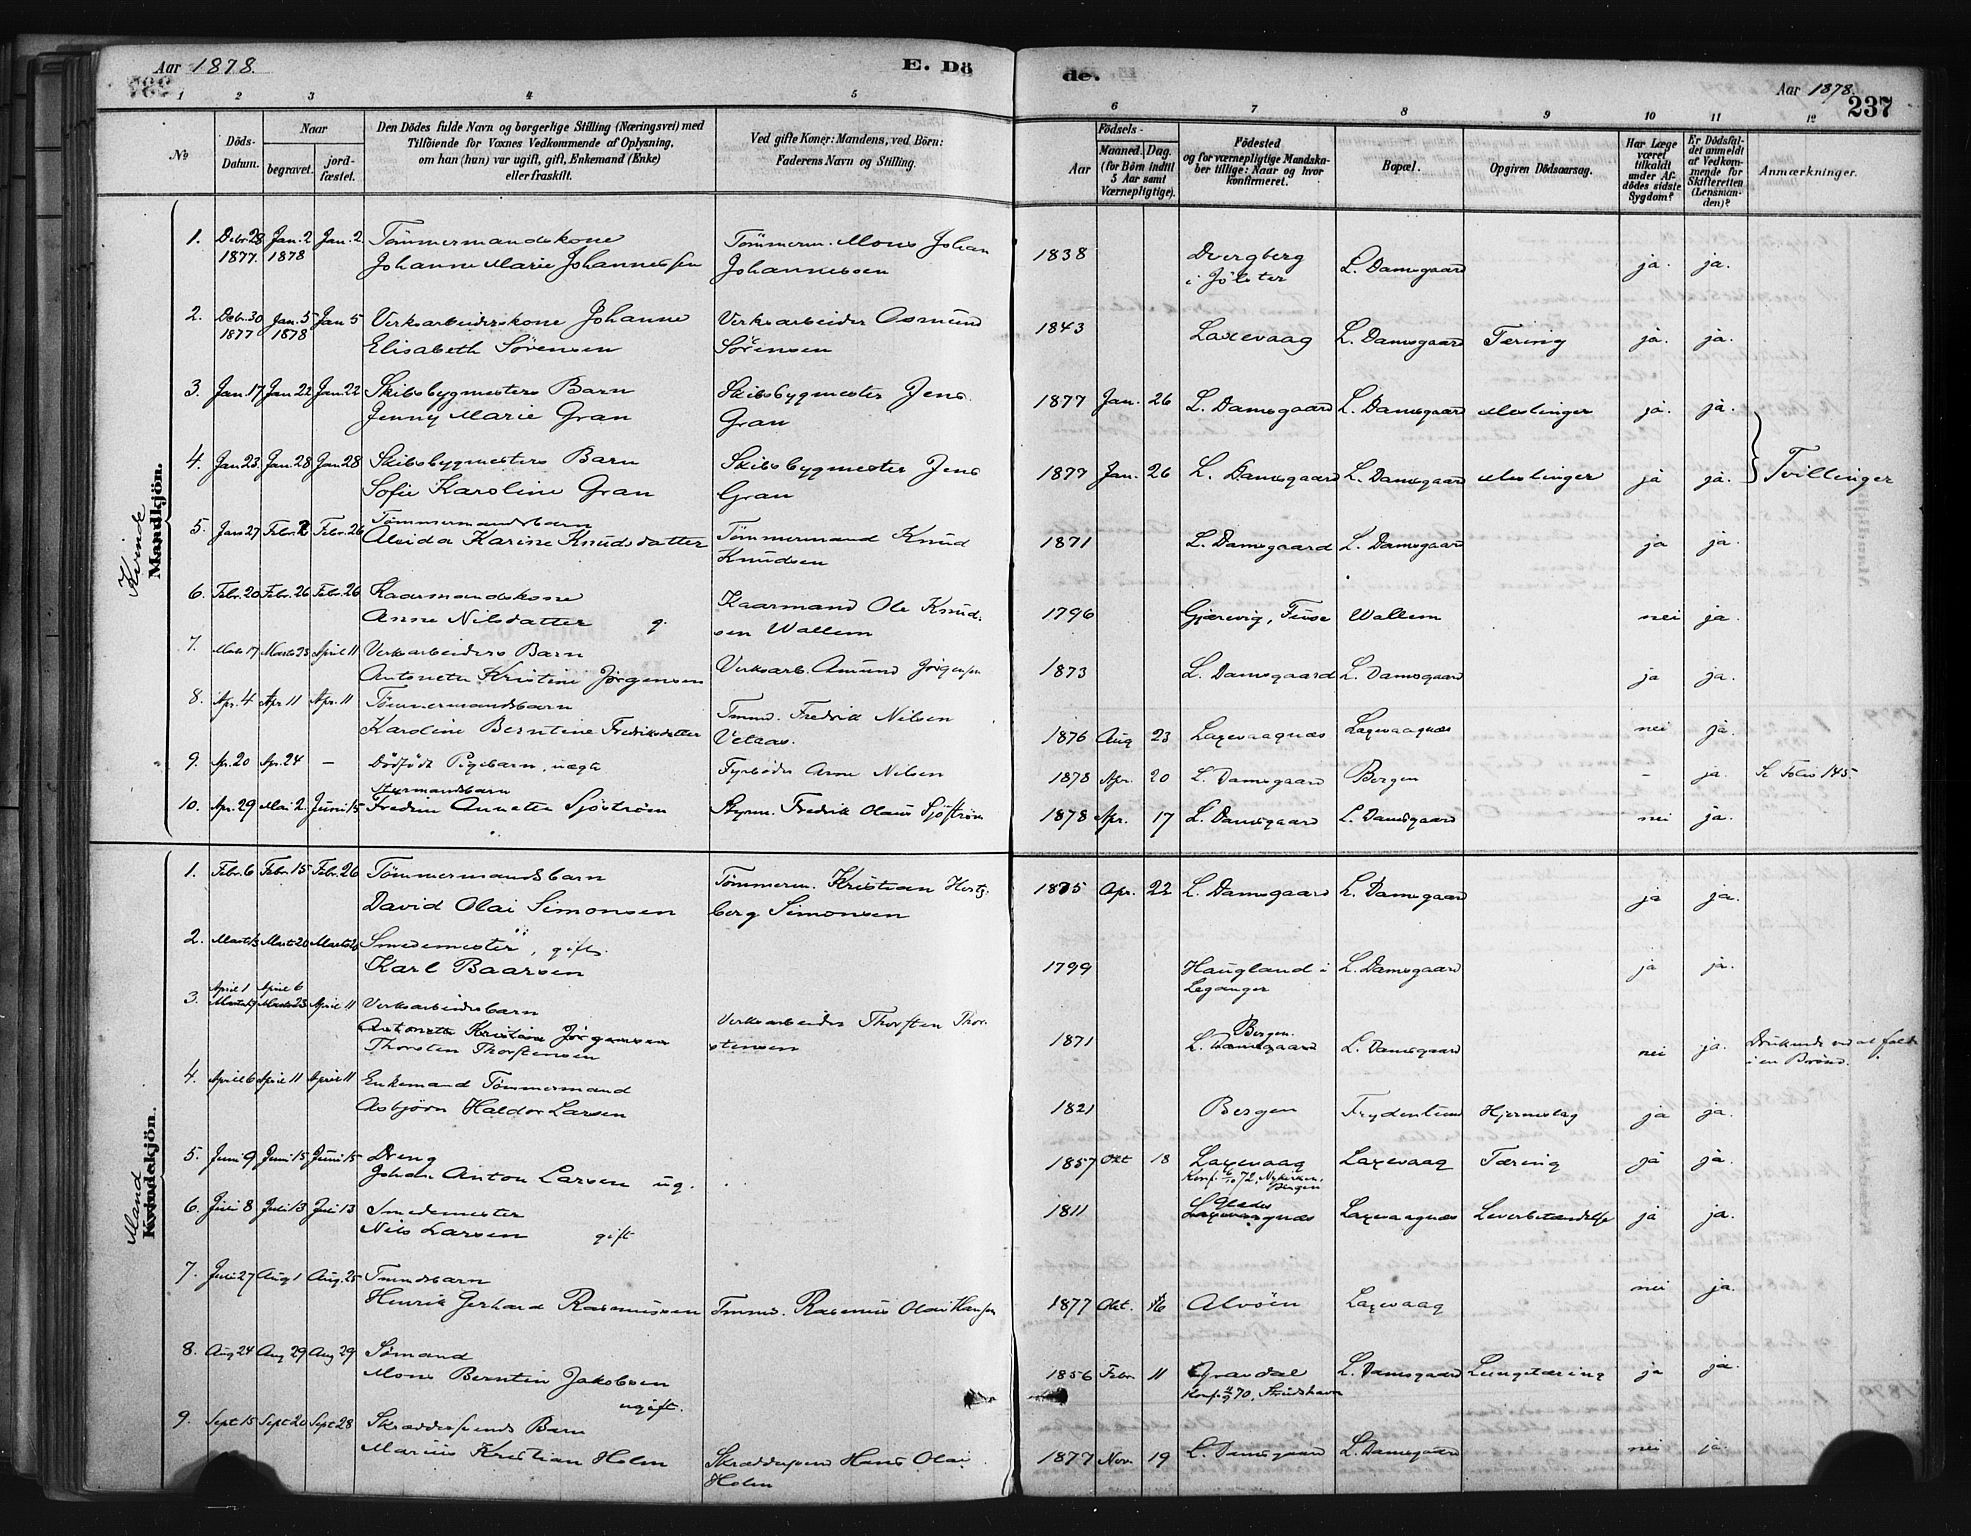 Aar 1878. E. Dö de. Aar 1878. 237
1 2 3 4 5 6 7 8 9 10 11 12
No
Döds-Datum.
Naar
begravet. jordfæstet.
Den Dödes fulde Navn og borgerlige Stilling (Næringsvei) med
Tilföiende for Voxnes Vedkommende af Oplysning,
om han (hun) var ugift, gift, Enkemand (Enke)
eller fraskilt.
Ved gifte Koner: Mandens, ved Börn:
Faderens Navn og Stilling.
Födsels-
Aar Maaned. Dag.
(for Börn indtil
5 Aar samt
Værnepligtige).
Födested
og for værnepligtige Mandska-
ber tillige: Naar og hvor
konfirmeret.
Bopæl.
Opgiven Dödsaarsag.
Har Læge
været
tilkaldt
under Af-
dödes sidste
Sygdom?
Er Dödsfal-
det anmeldt
af Vedkom-
mende for
Skifteretten
(Lensman-
den)?
Anmærkninger.
Kvinde
Mandkjön.
1. Debr. 28 Jan. 2 Jan. 2 Tömmermandskone Tömmerm. Mons Johan 1838 Dvergberg L. Damsgaard ja. ja.
1877. 1878 Johanne Marie Johannessen Johannessen i Jölster
2. Debr. 30 Jan. 5 Jan 5 Verksarbeiderskone Johanne Verksarbeider Osmund 1843 Laxevaag L. Damsgaard Tæring ja. ja.
1877 1878 Elisabeth Sörensen Sörensen
3. Jan. 17 Jan 22 Jan. 22 Skibsbygmesters Barn Skibsbygmester Jens 1877 Jan. 26 L. Damsgaard L. Damsgaard Meslinger ja. ja.
Jenny Marie Gran Gran
4. Jan 23. Jan. 28 Jan 28 Skibsbygmesters Barn Skibsbygmester Jens 1877 Jan. 26 L. Damsgaard L. Damsgaard Meslinger ja ja. Tvillinger
Sofie Karoline Gran Gran
5. Jan 27 Febr. 2 Febr. 26 Tömmermandsbarn Tömmermand Knud 1871 L. Damsgaard L. Damsgaard ja ja.
Alvida Karine Knudsdatter Knudsen
6. Febr. 20 Febr. 26 Febr. 26 Kaarmandskone Kaarmand Ole Knud- 1796 Gjærevig, Fuse Wallem nei ja.
Anne Nilsdatter g. sen Wallem
7. Marts 17 Marts 23 April 11 Verksarbeiders Barn Verksarb. Amund Jörgensen 1873 L. Damsgaard L. Damsgaard ja ja.
Antonette Kristine Jörgensen
8. Apr. 4 Apr 11 Apr. 11 Tömmermandsbarn Tmmd. Fredrik Nilsen 1876 Aug 23 Laxevaagnæs Laxevaagnæs nei ja.
Karoline Berntine Fredriksdatter
9. Ap. 20 Ap. 24 — Dödfödt Pigebarn, uægte Fyrböder Arne Nilsen 1878 Apr. 20 L. Damsgaard Bergen - ja. Se Folio 145
Styrmandsbarn
10. Apr. 29 Mai 2. Juni 15 Annette Sjöström Styrm. Fredrik Olaus Sjöström 1878 Apr. 17 L. Damsgaard L. Damsgaard nei ja.
Mand
Kvindekjön.
1. Febr. 6 Febr. 15 Febr. 26 Tömmermandsbarn Tömmerm. Kristian Hertz- 1875 Apr. 22 L. Damsgaard L. Damsgaard ja ja.
David Olai Simonsen berg Simonsen
2. Marts 20 Smedemester, gift. 1799 Haugland i L. Damsgaard ja ja.
Karl Baarsen Leganger
April 1 April 6
3. April 11 Verksarbeidersbarn Verksarbeider Thorsten Thor- 1871 Bergen. L. Damsgaard nei ja. Druknede ved at falde
Antonette Kristine Jörgensen stensen L. Damsgaard i en Brönd.
Thorsten Thorstensen
4. April 6 April 11 April 11 Enkemand Tömmermand 1821 Bergen Frydenlund Hjerneslag ja ja.
Asbjörn Haldor Larsen
5. Juni 9 Juni 15 Juni 15 Dreng 1857 Okt 18 Laxevaag Laxevaag Tæring ja ja.
Johan Anton Larsen ug. Konf. 72, Nykirken, Bergen
6. Juli 8 Juli 13 Juli 13 Smedemester 1811 Laxevaagnæs Laxevaagnæs Leverbetændelse ja ja.
Nils Larsen gift
7. Juli 27 Aug 1 Aug. 25 Tmmdsbarn nei ja.
Henrik Gerhard Rasmussen Tmmd. Rasmus Olai Hansen 1877 Okt. 16 Alvöen Laxevaag
8. Aug 24 Aug 29 Aug 29 Sömand 1856 Febr 11 Gravdal L. Damsgaard Lungetæring ja ja.
Mons Berntin Jakobsen Konf. 70, Strudshavn
ugift.
9. Sept 15 Sept 20 Sept 28 Skræddersvends Barn nei ja.
Marius Kristian Holm Skræddersvend Hans Olai 1877 Nov. 19 L. Damsgaard L. Damsgaard
Holm